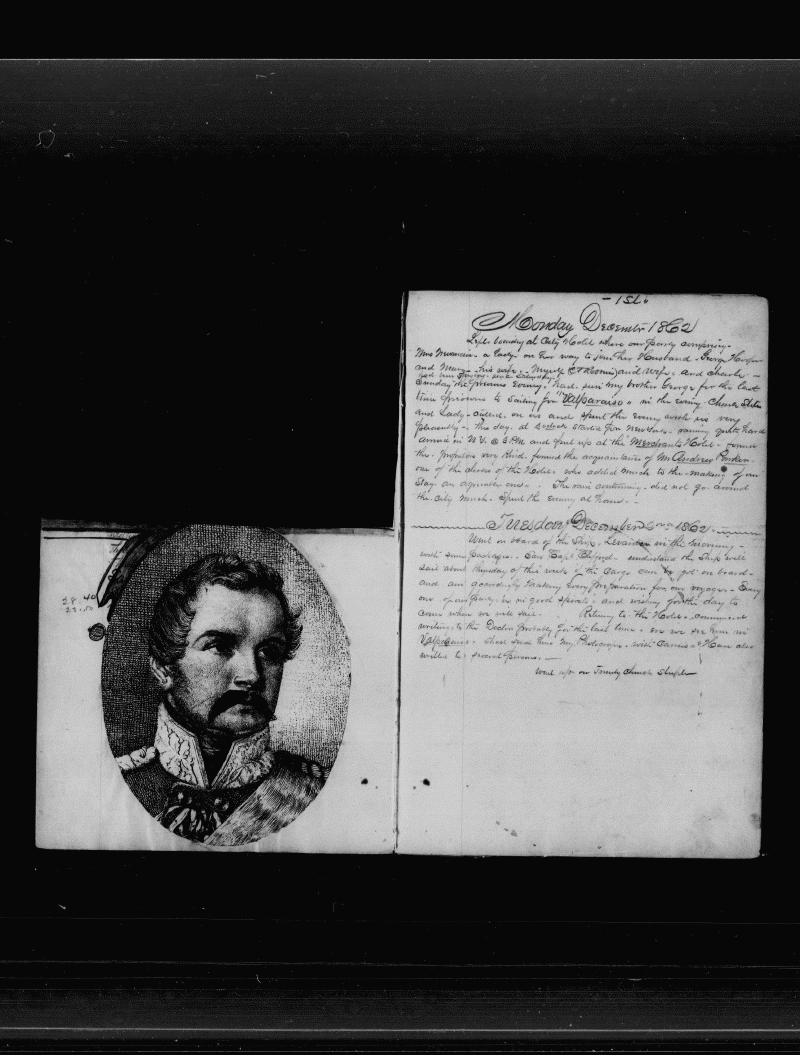 28.40
23.50
- 1st.
Monday December 1862
Left boundry at City Hotel where our party comprising
Mrs a lady on her way to join her Husband. George
and Mary his wife, Myself and Wife, and Charlie
Sunday the previous Evening. had seen my brother George for the last
time previous to Sailing for "Valparaiso" in the eving.
and Lady called on us and spent the Evening with us very
pleasantly. this day at started for New York. raining quite hard
arrived in N.Y. @ 3 PM and put up at the Merchants Hotel. found
the propietor very Kind. formed the acquaintance of Mr Andrew
one of the clerks of the Hotel. who added much to the making of our
Stay an agreeable one. The rain continuing. did not go around
the city much. Spent the evening at home.
Tuesday December 2nd 1862.
Went on board of the Ship. in the morning
with some packages. Saw Capt understand the Ship will
sail about thursday of this week if the Cargo can be got on board
and am accordingly making Every preparation for our voyage. Every
one of our party is in good spirits. and wishing for the day to
come when we will sail. Return to the Hotel. commence
writing to the Doctor probably for the last time. we see him in
Valparaiso. Shall send him my Photograph. with Carries & Have also
written to several persons.
Went up on Trinity Church Steeple